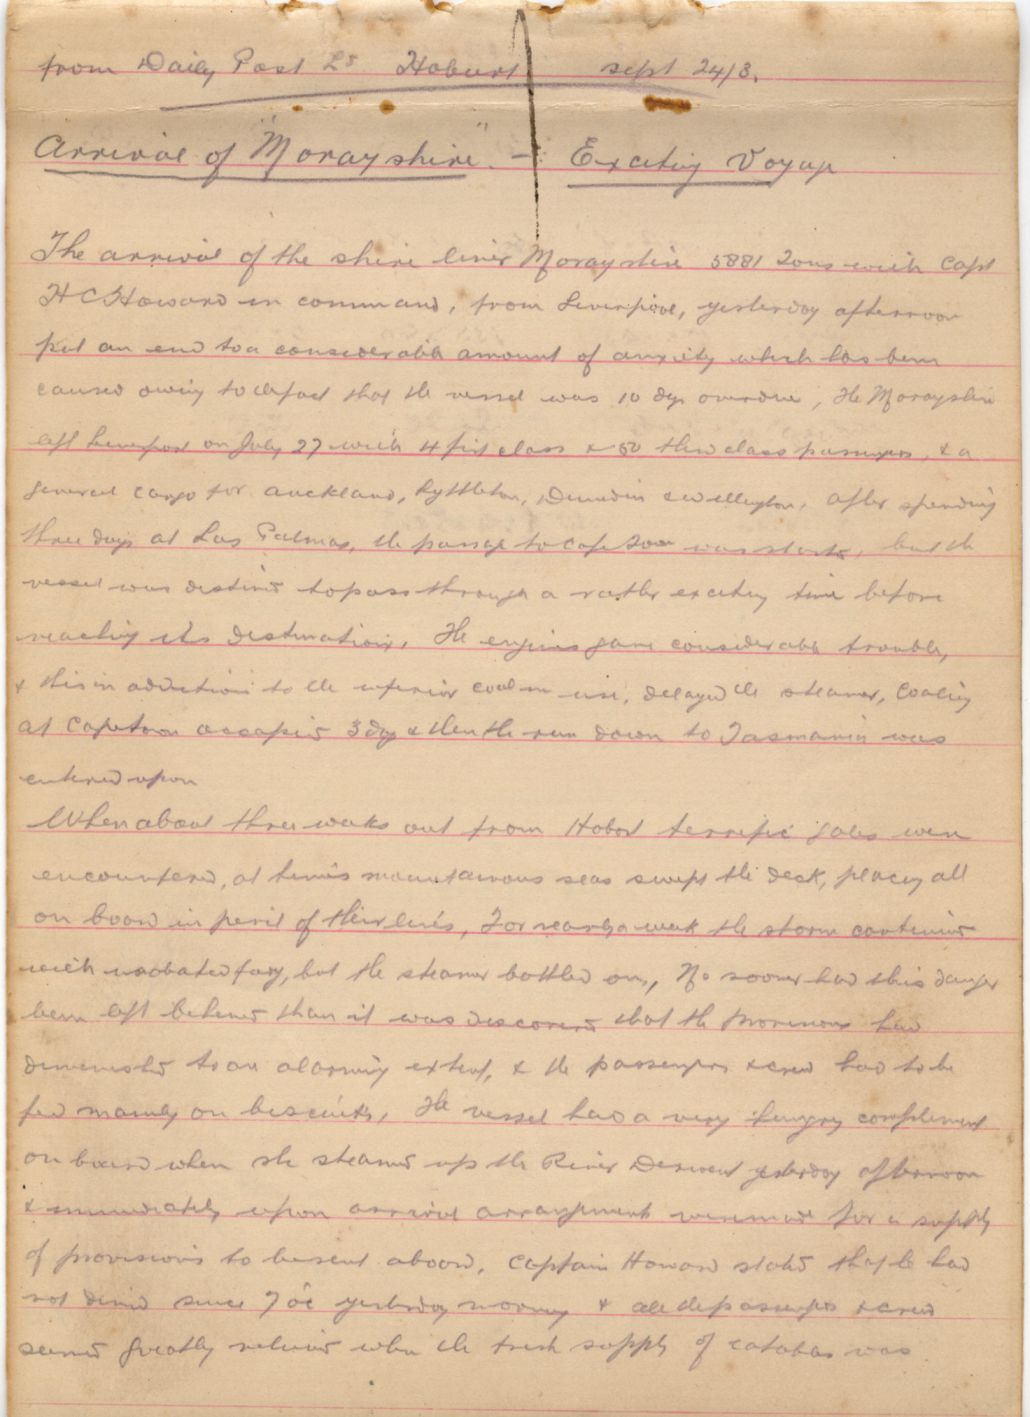 from Daily Post Ld Hobart sept 24/13.
Arrival of "Morayshire" - Exciting Voyage
The arrival of the shire liner Morayshire 5881 Tons with Capt
H C Howard in command, from Liverpool, yesterday afternoon
put an end to a considerable amount of anxiety which has been
caused owing to the fact that the vessel was 10 dys overdue, The Morayshire
left Liverpool on July 27 with 4 first class & 50 third class passengers, & a
general cargo for Auckland, Lyttleton, Dunedin & Wellington, after spending
three days at Las Palmas, the passage to Cape Town was started, but the
vessel was destined to pass through a rather exciting time before
reaching its destination, The engines gave considerable trouble,
& this in addition to the inferior coal in use, delayed the steamer, Coaling
at Capetown occupied 3 dys & then the run down to Tasmania was
entered upon
When about three weeks out from Hobart terrific gales were
encountered, at times mountainous seas swept the deck, placing all
on board in peril of their lives, For nearly a week the storm continued
with unabated fury, but the steamer battled on, No sooner had this danger
been left behind than it was discovered that the provisions had
diminished to an alarming extent, & the passengers & crew had to be
fed mainly on biscuits, The vessel had a very hungry complement
on board when she steamed up the River Derwent yesterday afternoon
& immediately upon arrival arrangements were made for a supply
of provisions to be sent aboard, Captain Howard stated that he had
not dined since 7 oc yesterday morning & all the passengers & crew
seemed greatly relieved when the fresh supply of eatables was